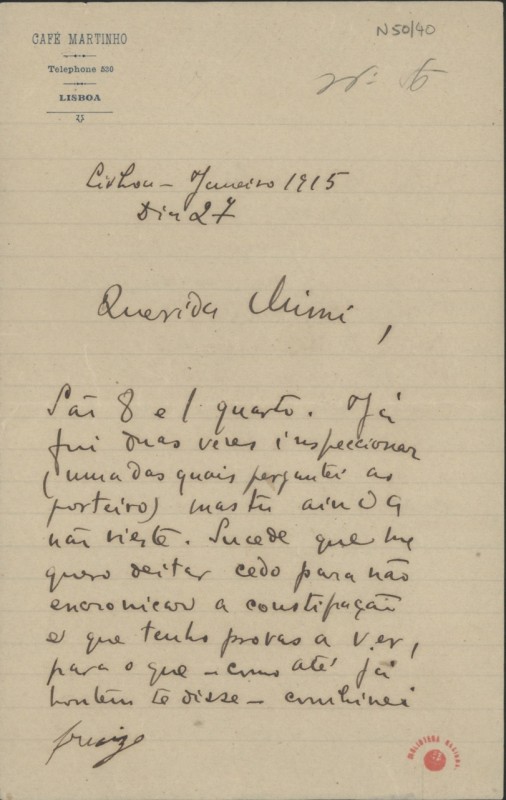 CAFÉ MARTINHO
Telephone 530
LISBOA
N50/40
Nº 15
Lisboa - Janeiro 1915
Dia 27
Querida Mimi,
São 8 e 1 quarto. Já
fui duas vezes inspeccionar
(numa das quais perguntei ao
porteiro) mas tu ainda
não vieste. Sucede que me
quero deitar cedo para não
encronicar a constipação
e que tenho provas a ver,
para o que - como até já
hontem te disse - combinei
BIBLIOTHECA NACIONAL